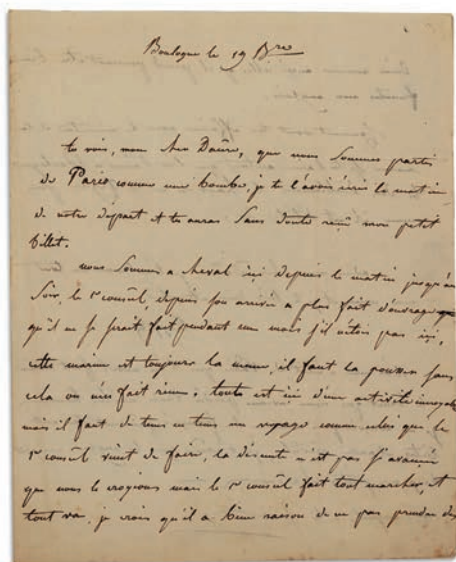 Boulogne le 19 Bre
tu vois, mon cher Daûre, que nous sommes partis
de Paris comme une bombe, je te l'avois écris le matin
de notre départ et tu auras sans doute reçû mon petit
billet.
nous sommes a cheval ici depuis le matin jusqu'au
soir, le 1er consûl, depuis son arrivée a plus fait d'ouvrage
qu'il ne se serait fait pendant un mois s'il n'étois pas ici,
cette marine est toujours la même, il faut la pousser sans
cela on n'en fait rien. toute est ici d'une activité incroyable
mais il faut de tems en tems un voyage comme celui que le
1er consûl vient de faire, la descente n'est pas si avancée
que nous le croyions mais le 1er consûl fait tout marcher, et
tout va, je crois qu'il a bien raison de ne pas prendre des